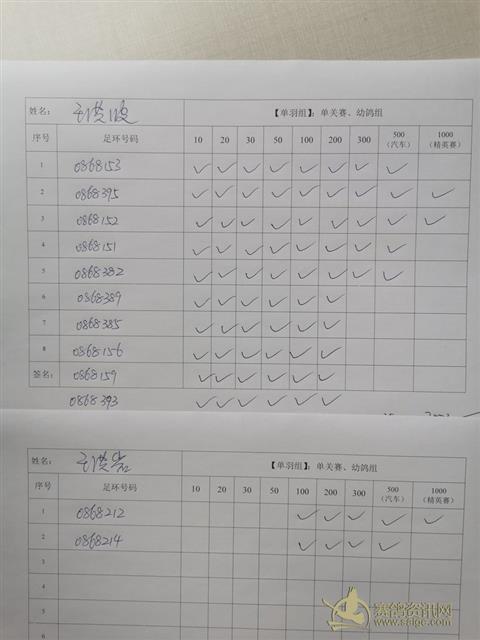 姓名： 【单羽组】：单关赛、幼鸽组
序号 足环号码 10 20 30 50 100 200 300 500（汽车） 1000（精英赛）
1 0868153 ✓ ✓ ✓ ✓ ✓ ✓ ✓ ✓
2 0868395 ✓ ✓ ✓ ✓ ✓ ✓ ✓ ✓ ✓
3 0868152 ✓ ✓ ✓ ✓ ✓ ✓ ✓ ✓ ✓
4 0868151 ✓ ✓ ✓ ✓ ✓ ✓ ✓ ✓
5 0868382 ✓ ✓ ✓ ✓ ✓ ✓ ✓ ✓
6 0868389 ✓ ✓ ✓ ✓ ✓ ✓
7 0868385 ✓ ✓ ✓ ✓ ✓ ✓
8 0868156 ✓ ✓ ✓ ✓ ✓ ✓
签名： 0868159 ✓ ✓ ✓ ✓ ✓ ✓
0868393 ✓ ✓ ✓ ✓ ✓ ✓
姓名： 【单羽组】：单关赛、幼鸽组
序号 足环号码 10 20 30 50 100 200 300 500（汽车） 1000（精英赛）
1 0868212 ✓ ✓ ✓ ✓ ✓
2 0868214 ✓ ✓ ✓ ✓
3
4
5
6
赛鸽资讯网
www.saigc.com